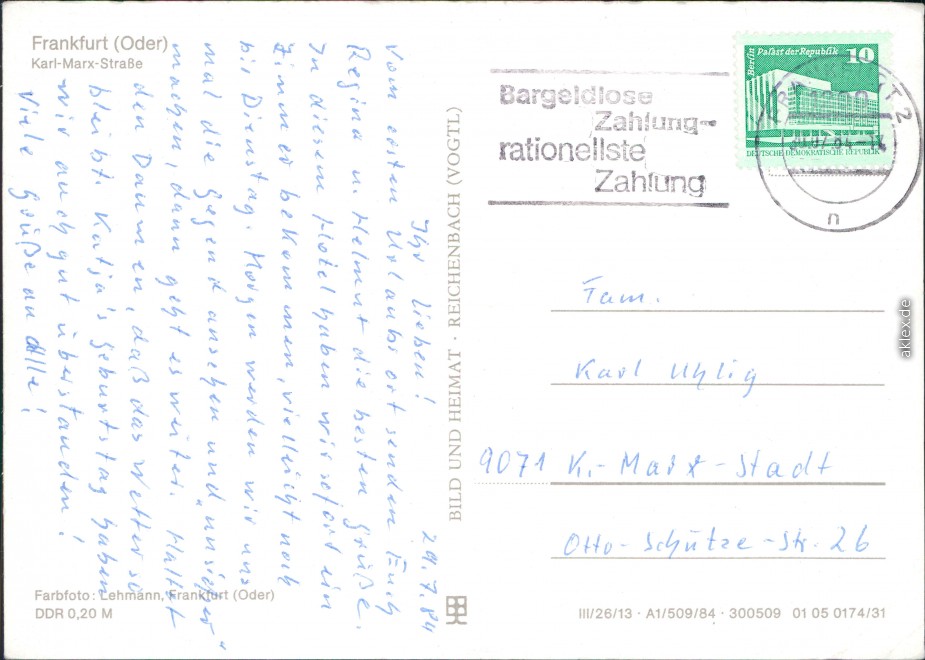 Frankfurt (Oder)
Karl-Marx-Straße
29.7.84
Ihr lieben!
Vom ersten Urlaubsort senden Euch
Regina u. Helmut die besten Grüße.
In diesem Hotel haben wir sofort ein
Zimmer bekommen, vielleicht noch
bis Dienstag. Morgen werden wir uns
mal die Gegend ansehen und „unsicher“
machen, dann geht es weiter. Haltet
den Daumen, daß das Wetter so
bleibt. Katja's Geburtstag haben
wir auch gut überstanden!
Viele Grüße an Alle!
Farbfoto: Lehmann, Frankfurt (Oder)
DDR 0,20 M
BILD UND HEIMAT · REICHENBACH (VOGTL)
Bargeldlose
Zahlung-
rationellste
Zahlung
Berlin Palast der Republik 10
DEUTSCHE DEMOKRATISCHE REPUBLIK
n
Fam.
Karl Uhlig
9071 K.-Marx-Stadt
Otto-Schütze-Str. 26
III/26/13 · A1/509/84 · 300509 01 05 0174/31
aklex.de